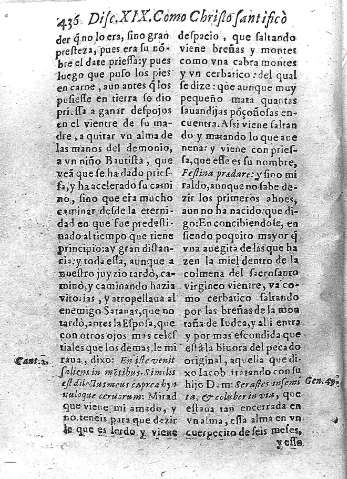 436 Disc. XIX. Como Christo santificò
der q̃ no lo era, sino gran
presteza, pues era su nõ-
bre el date priessa: y pues
luego que puso los pies
en carne, aun antes q̃ los
pusiesse en tierra se dio
priessa a ganar despojos
en el vientre de su ma-
dre, a quitar vn alma de
las manos del demonio,
a vn niño Bautista, que
vea que se ha dado pries-
sa, y ha acelerado su cami
no, sino que era mucho
caminar desde la eterni-
dad en que fue predesti-
nado al tiempo que tiene
principio: y gran distan-
cia: y toda essa, aunque a
nuestro juyzio tardò, ca-
minò, y caminando hazia
vitorias, y atropellaua al
enemigo Satanas, que no
tardò, antes la Esposa, que
con otros ojos mas celes-
tiales que los demas, le mi
raua, dixo: En iste venit
saliens in montibus. Similis
est dilectus meus capreæ hyn
nuloque ceruorum: Mirad
que viene mi amado, y
no teneis para que dezir
le que es lerdo y viene
Cant. 2.
despacio, que saltando
viene breñas y montes
como vna cabra montes
y vn cerbatico: del qual
se dize: que aunque muy
pequeño mata quantas
sauandijas põçoñosas en-
cuentra. Assi viene saltan
do y matando lo que ace
nenar y viene con pries-
sa, que esse es su nombre,
Festina prædare: y sino mi
raldo, aunque no sabe de-
zir los primeros ahoes,
aun no ha nacido: que di-
go: En concibiendole, en
siendo poquito mayor q̃
vna auegita de las que ha
zen la miel dentro de la
colmena del sacrosanto
virgineo vientre, va co-
mo cerbatico saltando
por las breñas de la mon
taña de Iudea, y alli entra
y por mas escondida que
està la biuora del pecado
original, aquella que di-
xo Iacob tratando con su
hijo Dam: Serastes in semi
ta, & coluber in via, que
estaua tan encerrada en
vn alma, essa alma en vn
cuerpecito de seis meses,
y esse
Gen. 49.